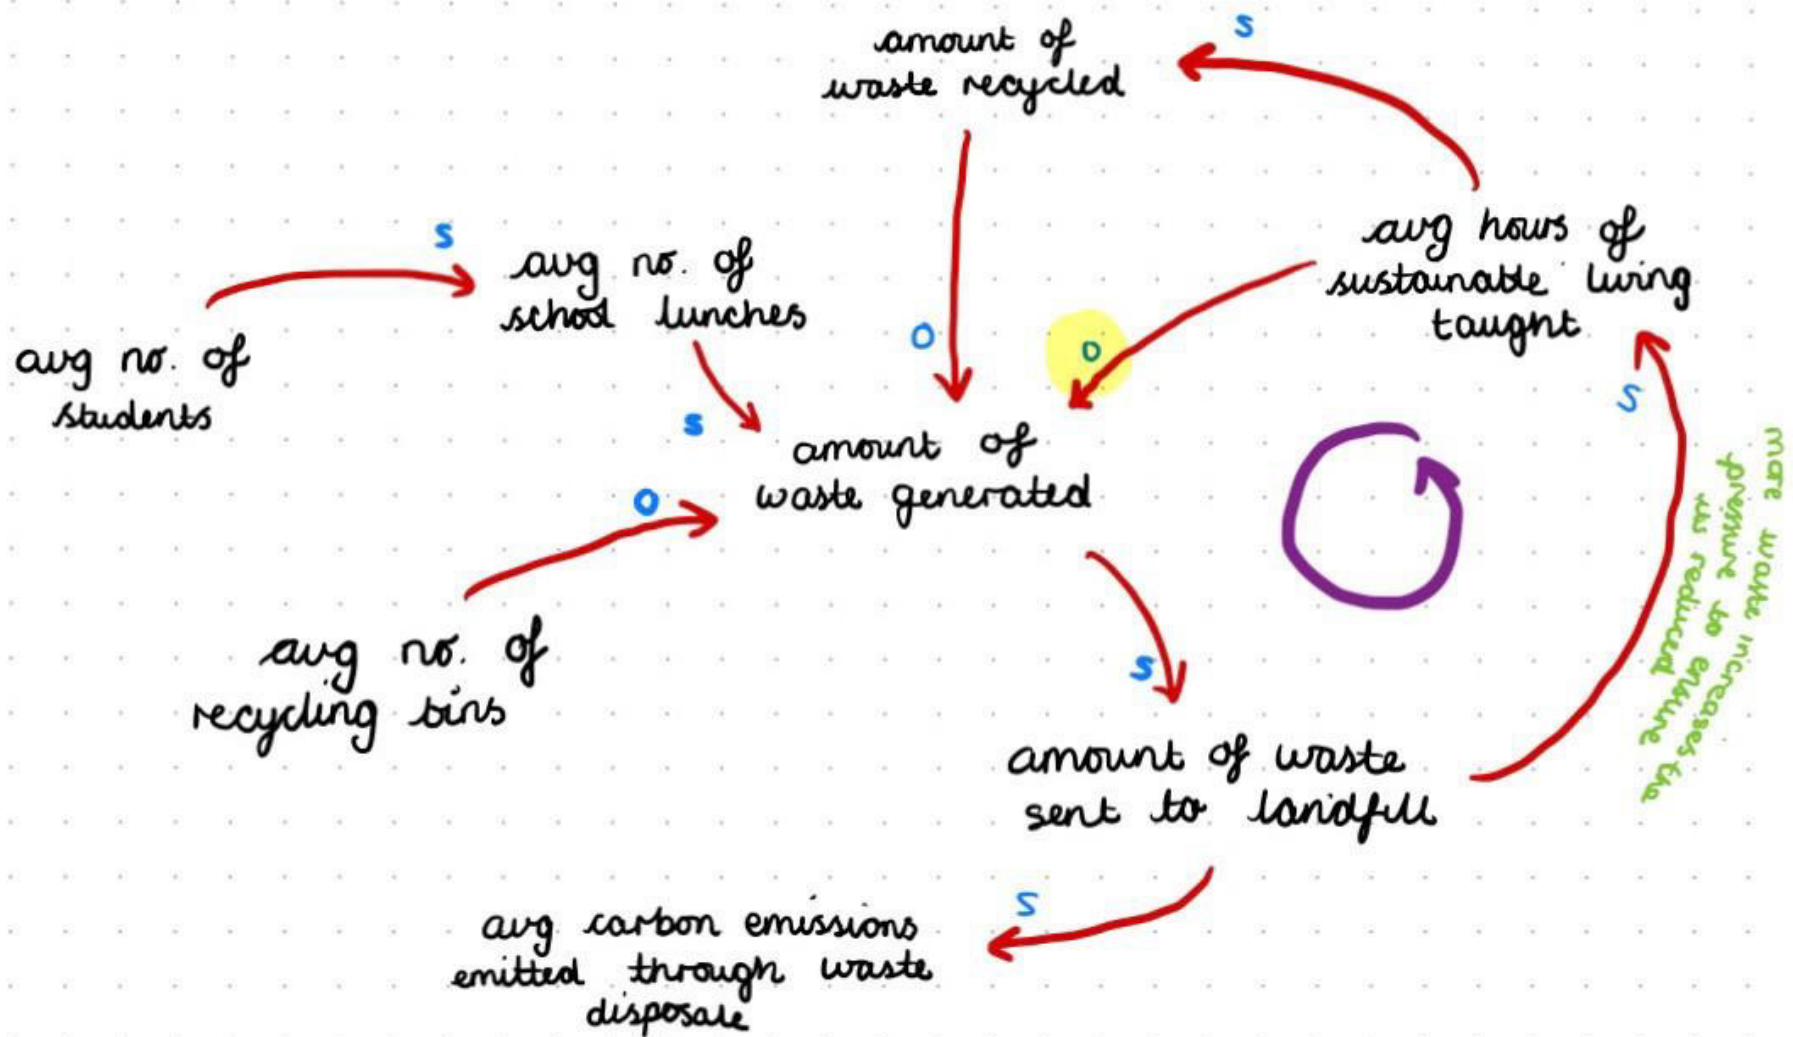 s
amount of
waste recycled
s
avg no. of
school lunches
avg hours of
sustainable living
taught
avg no. of
students
o
o
s
s
amount of
waste generated
o
avg no. of
recycling bins
more waste increases the
pressure to ensure
is reduced
s
amount of waste
sent to landfill
s
avg carbon emissions
emitted through waste
disposale